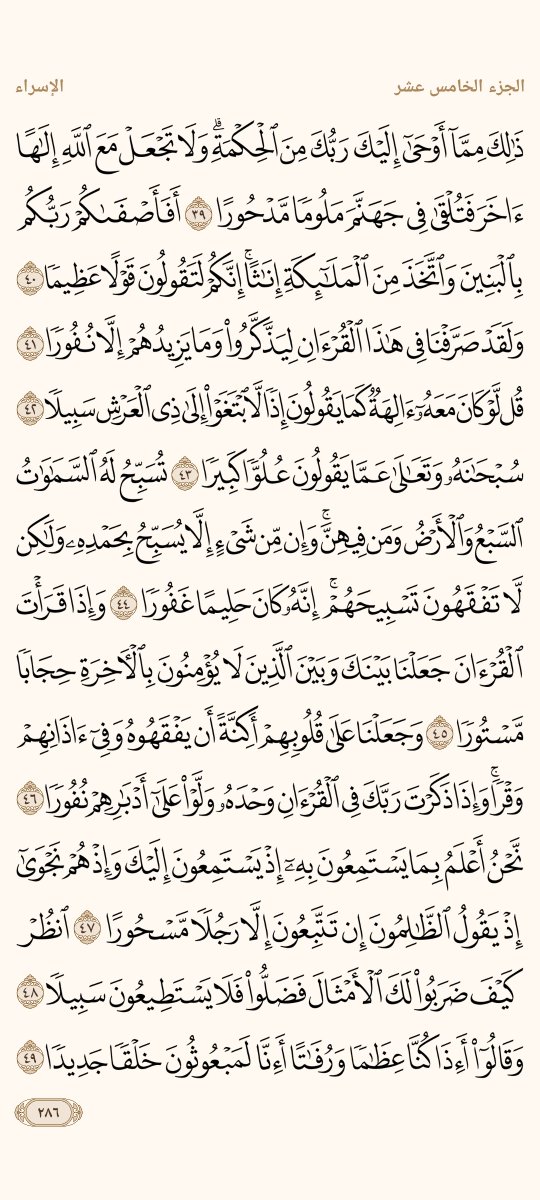 الجزء الخامس عشر
الإسراء
ذَٰلِكَ مِمَّآ أَوْحَىٰٓ إِلَيْكَ رَبُّكَ مِنَ ٱلْحِكْمَةِۗ وَلَا تَجْعَلْ مَعَ ٱللَّهِ إِلَٰهًا
ءَاخَرَ فَتُلْقَىٰ فِى جَهَنَّمَ مَلُومًا مَّدْحُورًا ٣٩ أَفَأَصْفَىٰكُمْ رَبُّكُم
بِٱلْبَنِينَ وَٱتَّخَذَ مِنَ ٱلْمَلَٰٓئِكَةِ إِنَٰثًاۚ إِنَّكُمْ لَتَقُولُونَ قَوْلًا عَظِيمًا ٤٠
وَلَقَدْ صَرَّفْنَا فِى هَٰذَا ٱلْقُرْءَانِ لِيَذَّكَّرُوا۟ وَمَا يَزِيدُهُمْ إِلَّا نُفُورًا ٤١
قُل لَّوْ كَانَ مَعَهُۥٓ ءَالِهَةٌ كَمَا يَقُولُونَ إِذًا لَّٱبْتَغَوْا۟ إِلَىٰ ذِى ٱلْعَرْشِ سَبِيلًا ٤٢
سُبْحَٰنَهُۥ وَتَعَٰلَىٰ عَمَّا يَقُولُونَ عُلُوًّا كَبِيرًا ٤٣ تُسَبِّحُ لَهُ ٱلسَّمَٰوَٰتُ
ٱلسَّبْعُ وَٱلْأَرْضُ وَمَن فِيهِنَّۚ وَإِن مِّن شَىْءٍ إِلَّا يُسَبِّحُ بِحَمْدِهِۦ وَلَٰكِن
لَّا تَفْقَهُونَ تَسْبِيحَهُمْۚ إِنَّهُۥ كَانَ حَلِيمًا غَفُورًا ٤٤ وَإِذَا قَرَأْتَ
ٱلْقُرْءَانَ جَعَلْنَا بَيْنَكَ وَبَيْنَ ٱلَّذِينَ لَا يُؤْمِنُونَ بِٱلْءَاخِرَةِ حِجَابًا
مَّسْتُورًا ٤٥ وَجَعَلْنَا عَلَىٰ قُلُوبِهِمْ أَكِنَّةً أَن يَفْقَهُوهُ وَفِىٓ ءَاذَانِهِمْ
وَقْرًاۚ وَإِذَا ذَكَرْتَ رَبَّكَ فِى ٱلْقُرْءَانِ وَحْدَهُۥ وَلَّوْا۟ عَلَىٰٓ أَدْبَٰرِهِمْ نُفُورًا ٤٦
نَّحْنُ أَعْلَمُ بِمَا يَسْتَمِعُونَ بِهِۦٓ إِذْ يَسْتَمِعُونَ إِلَيْكَ وَإِذْ هُمْ نَجْوَىٰٓ
إِذْ يَقُولُ ٱلظَّٰلِمُونَ إِن تَتَّبِعُونَ إِلَّا رَجُلًا مَّسْحُورًا ٤٧ ٱنظُرْ
كَيْفَ ضَرَبُوا۟ لَكَ ٱلْأَمْثَالَ فَضَلُّوا۟ فَلَا يَسْتَطِيعُونَ سَبِيلًا ٤٨
وَقَالُوٓا۟ أَءِذَا كُنَّا عِظَٰمًا وَرُفَٰتًا أَءِنَّا لَمَبْعُوثُونَ خَلْقًا جَدِيدًا ٤٩
٢٨٦